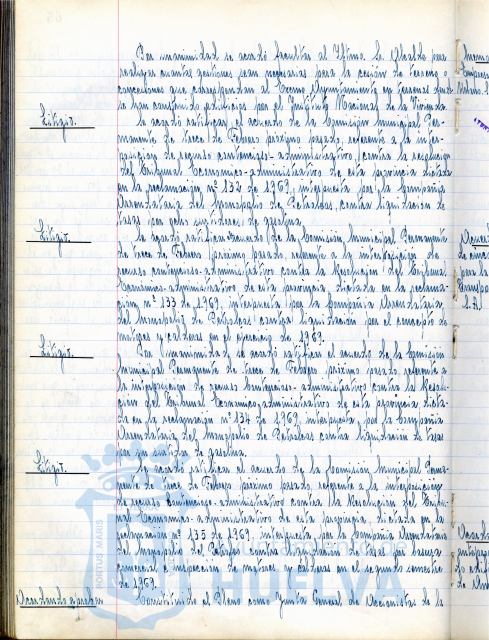 Por unanimidad se acordó facultar al Iltmo. Sr. Alcalde para
realizar cuantas gestiones sean necesarias para la cesión de terreno o
concesiones que correspondan al Excmo Ayuntamiento en terrenos que
se han construido edificios por el Instituto Nacional de la Vivienda.
Litigio.
Se acordó ratificar el acuerdo de la Comisión Municipal Per-
manente de trece de Febrero próximo pasado, referente a la inter-
posición de recurso contencioso-administrativo, contra la resolución
del Tribunal Económico-administrativo de esta provincia dictada
en la reclamación nº 132 de 1969, interpuesta por la Compañía
Arrendataria del Monopolio de Petróleos, contra liquidación de
tasas por ocho surtidores de gasolina.
Litigio.
Se acordó ratificar acuerdo de la Comisión Municipal Permanente
de trece de Febrero próximo pasado referente a la interposición de
recurso contencioso-administrativo contra la Resolución del Tribunal
Económico-administrativo de esta provincia dictada en la reclama-
ción nº 133 de 1969, interpuesta por la Compañía Arrendataria
del Monopolio de Petróleos, contra liquidación por el concepto de
motores y calderas en el ejercicio de 1969.
Litigio.
Por unanimidad se acordó ratificar el acuerdo de la Comisión
Municipal Permanente de trece de Febrero próximo pasado, referente a
la interposición de recurso Contencioso-administrativo contra la Resolu-
ción del Tribunal Económico-administrativo de esta provincia dicta-
da en la reclamación nº 134 de 1969, interpuesta por la Compañía
Arrendataria del Monopolio de Petróleos contra liquidación de tasas
por un surtidor de gasolina.
Litigio.
Se acordó ratificar el acuerdo de la Comisión Municipal Perma-
nente de trece de Febrero próximo pasado referente a la interposición
de recurso contencioso-administrativo contra la Resolución del Tribu-
nal Económico-administrativo de esta provincia, dictada en la
reclamación nº 135 de 1969, interpuesta por la Compañía Arrendataria
del Monopolio de Petróleos contra liquidación de tasas por
general e inspección de motores y calderas en el segundo semestre
de 1969.
Constituido el Pleno como Junta General de Accionistas de la
PORTUS MARIS
HUELVA